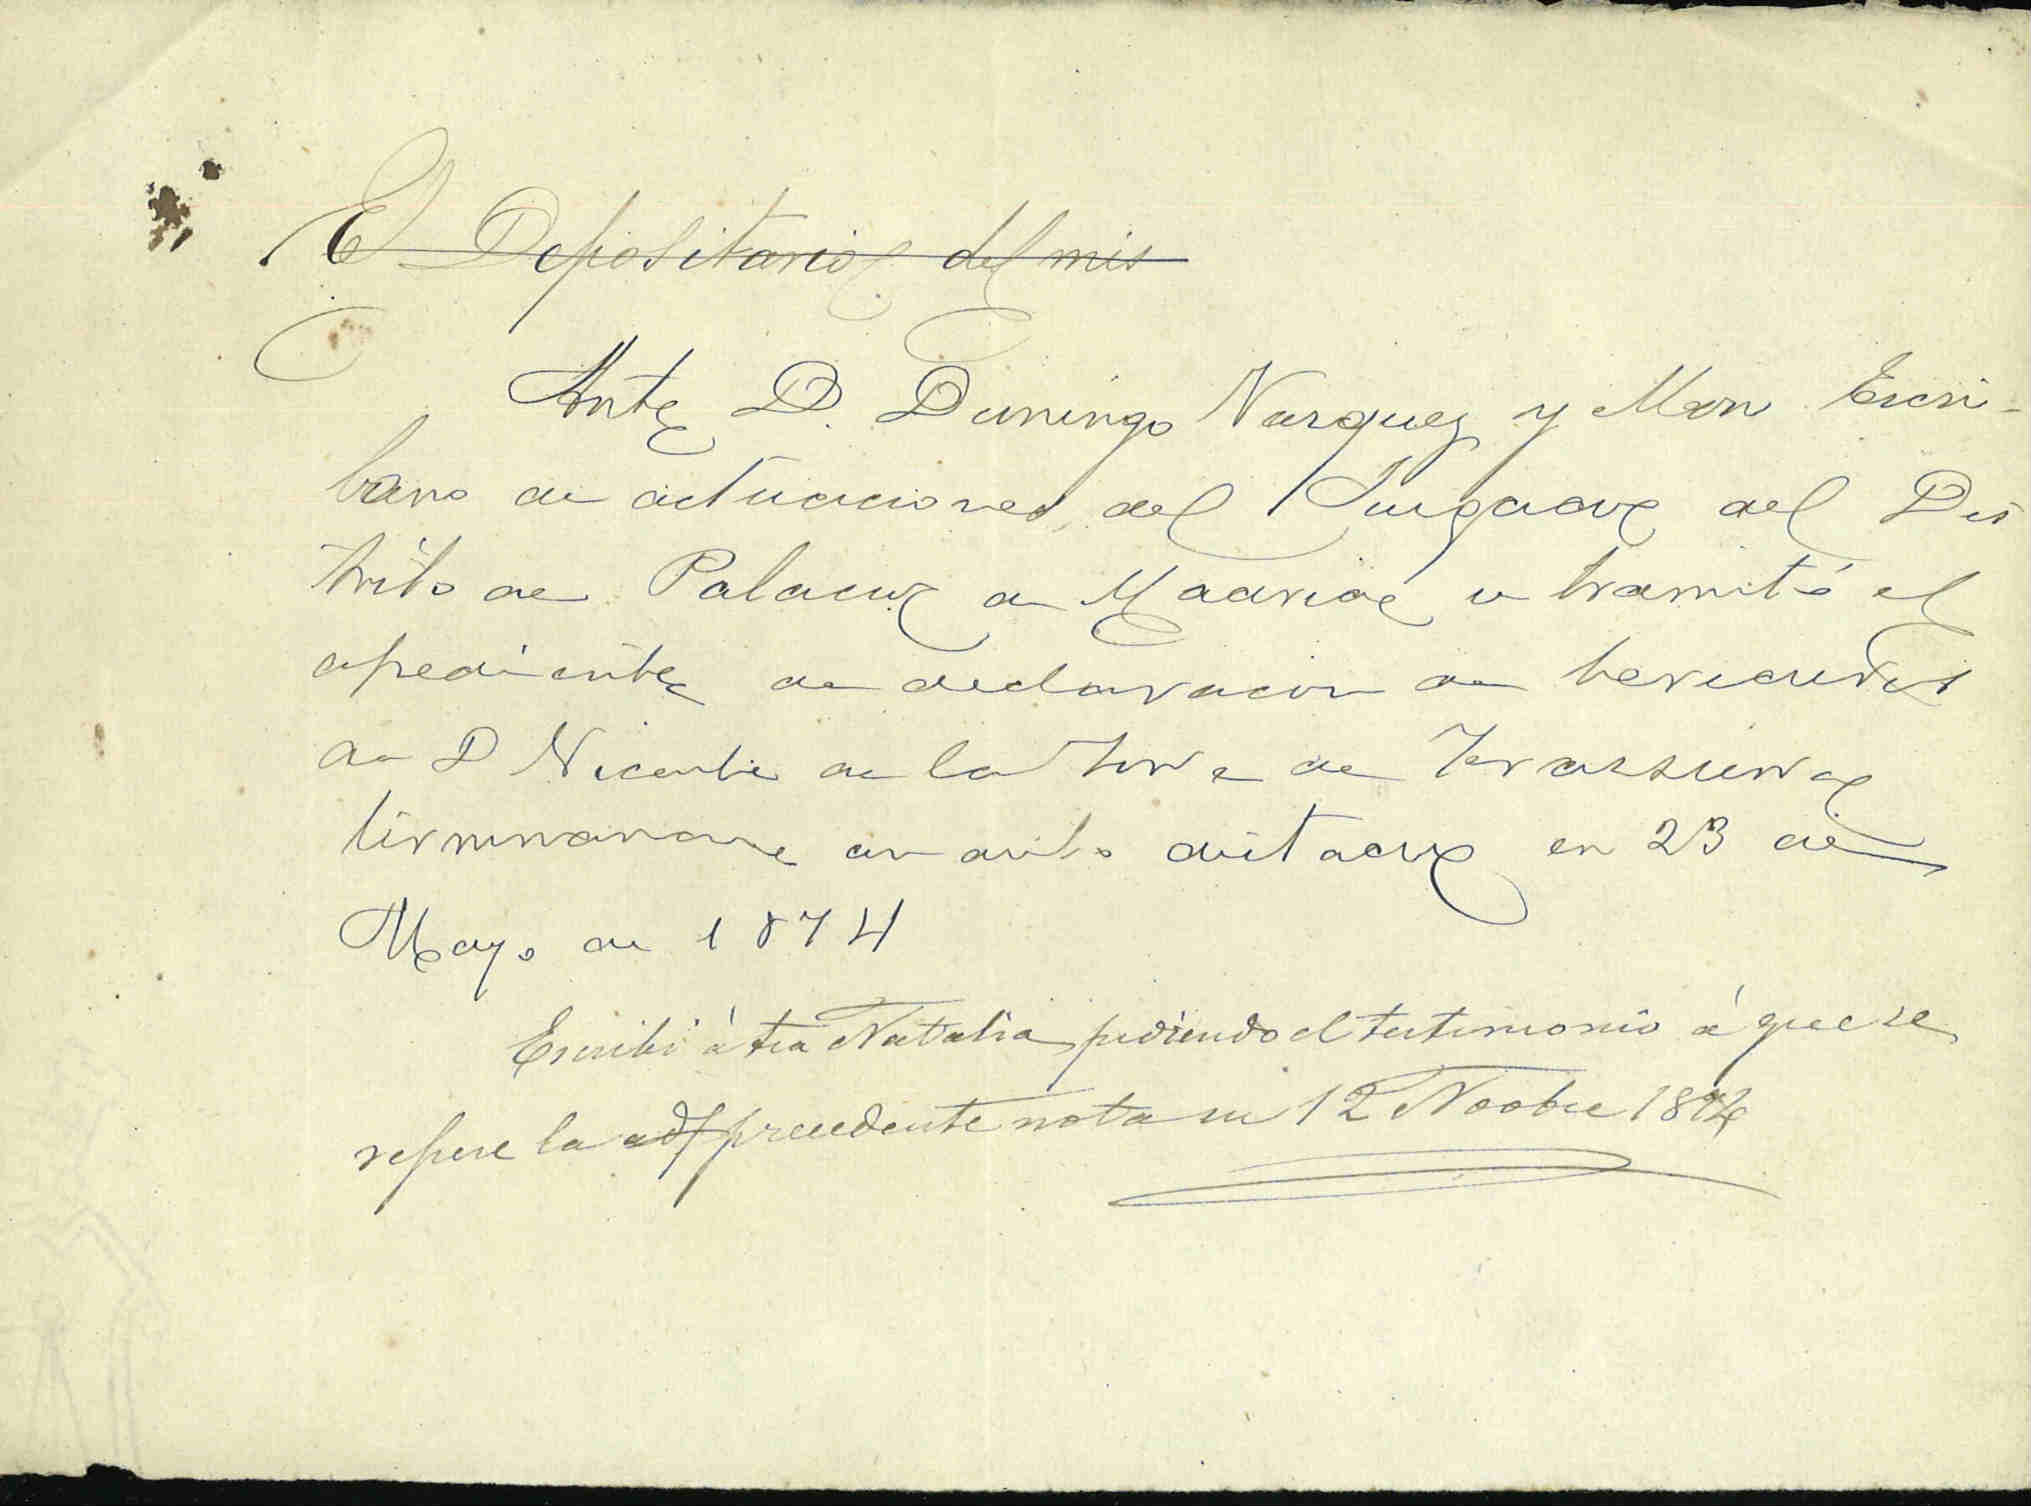 El Depositario del mis
Ante D. Domingo Vazquez y Mon Escri-
bano de actuaciones del Juzgado del Dis
trito de Palacio de Madrid se tramitó el
espediente de declaracion de herederos
de D Vicente de la Torre de Trassierra
terminandose en auto dictado en 23 de
Mayo de 1874
Escribi á tia Natalia pidiendo el testimonio á que se
refiere la precedente nota en 12 Novbre 1894